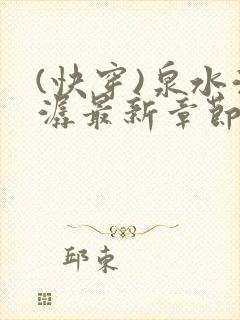 (快穿)泉水
潺最新章節
邱東